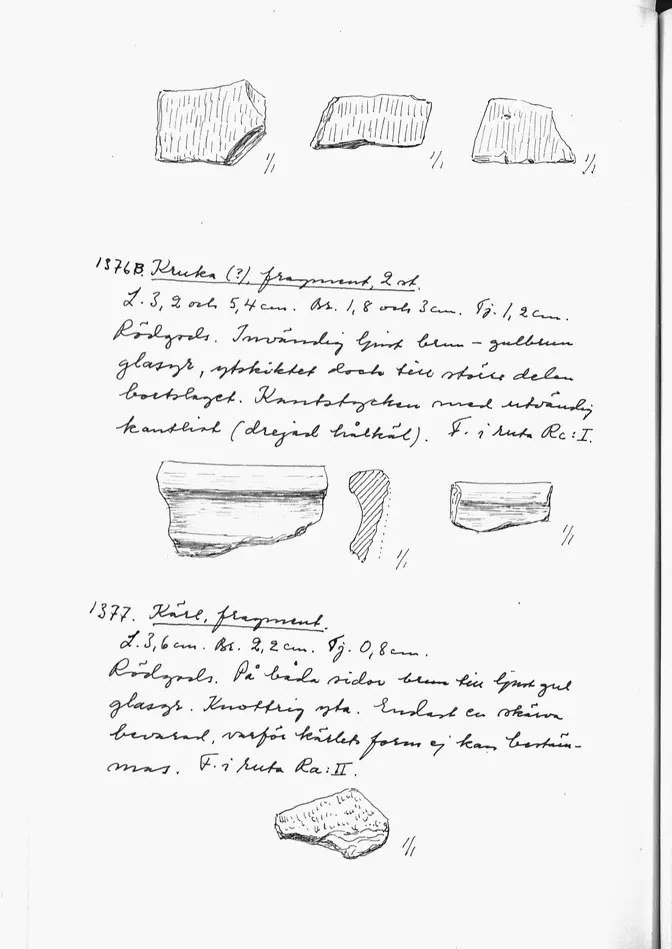 1/1 1/1 1/1
1376B. Kruka (?), fragment, 2 st.
L. 3,2 och 5,4 cm. Br. 1,8 och 3 cm. Tj. 1,2 cm.
Rödgods. Invändig ljust brun - gulbrun
glasyr, ytskiktet dock till större delen
bortslaget. Kantstycken med utvändig
kantlist (drejad hålkäl). F. i ruta Rc: I.
1/1 1/1
1377. Kärl, fragment.
L. 3,6 cm. Br. 2,2 cm. Tj. 0,8 cm.
Rödgods. På båda sidor brun till ljust gul
glasyr. Knottrig yta. Endast en skärva
bevarad, varför kärlets form ej kan bestäm-
mas. F. i ruta Ra: II.
1/1